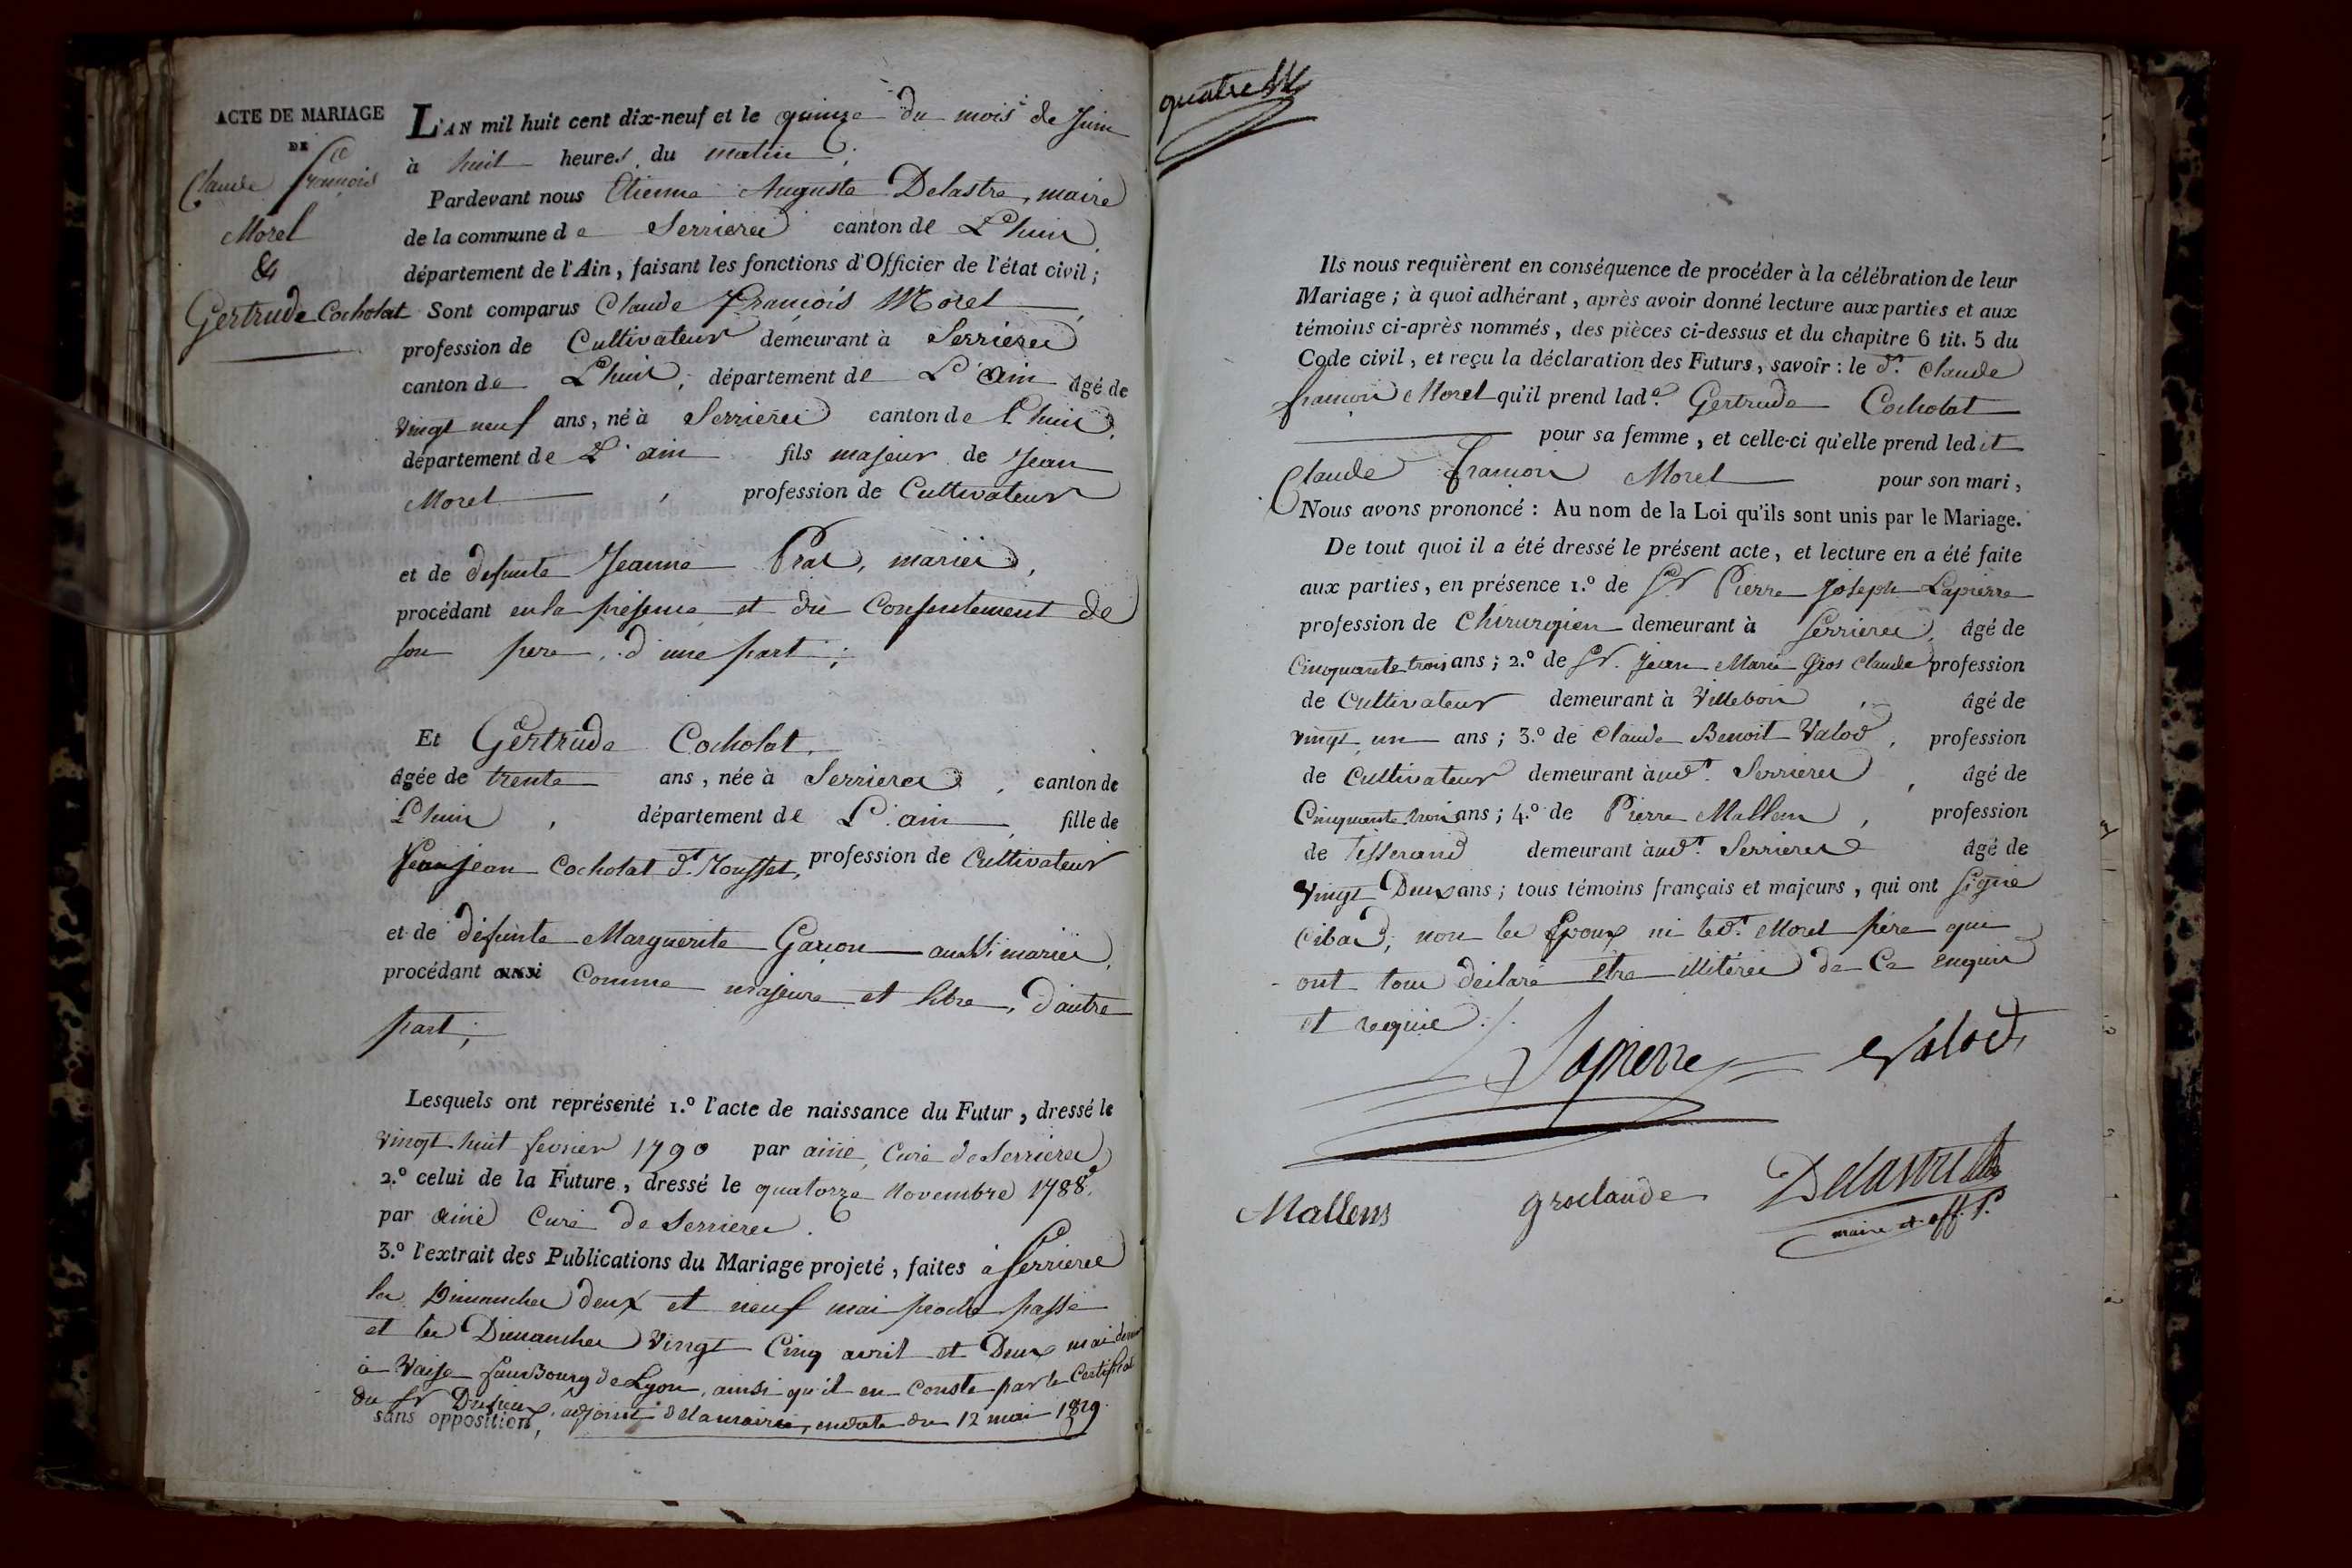 ACTE DE MARIAGE
DE
Claude François
Morel
&
Gertrude Cocholat
L'AN mil huit cent dix-neuf et le quinze du mois de Juin
à huit heures du matin ;
Pardevant nous Etienne Auguste Delastre, maire
de la commune de Serrieres canton de L'huis,
département de l'Ain, faisant les fonctions d'Officier de l'état civil ;
Sont comparus Claude François Morel,
profession de Cultivateur demeurant à Serrieres
canton de L'huis, département de L'ain âgé de
vingt neuf ans, né à Serrieres canton de L'huis,
département de L'ain fils majeur de Jean
Morel, profession de Cultivateur
et de defunte Jeanne Prat, mariés,
procédant en la présence et du Consentement de
son pere, d'une part ;
Et Gertrude Cocholat,
âgée de trente ans, née à Serrieres, canton de
L'huis, département de L'ain, fille de
Jean Cocholat dt. Rousset, profession de Cultivateur
et de défunte Marguerite Garçon aussi mariés,
procédant aussi Comme majeure et libre, d'autre
part ;
Lesquels ont représenté 1.º l'acte de naissance du Futur, dressé le
vingt huit fevrier 1790 par ainé, Curé de Serrieres
2.º celui de la Future, dressé le quatorze Novembre 1788.
par ainé Curé de Serrieres.
3.º l'extrait des Publications du Mariage projeté, faites à Serrieres
les Dimanches deux et neuf mai proche passé
et les Dimanches Vingt Cinq avril et Deux mai dernier
à Vaise fauxBourg de Lyon, ainsi qu'il en Conste par le Certificat
du Sr adjoint de la mairie, en date du 12 mai 1819.
sans opposition,
quatre
Ils nous requièrent en conséquence de procéder à la célébration de leur
Mariage ; à quoi adhérant, après avoir donné lecture aux parties et aux
témoins ci-après nommés, des pièces ci-dessus et du chapitre 6 tit. 5 du
Code civil, et reçu la déclaration des Futurs, savoir : le dt. Claude
françois Morel qu'il prend lade. Gertrude Cocholat
pour sa femme, et celle-ci qu'elle prend ledit
Claude françois Morel pour son mari,
Nous avons prononcé : Au nom de la Loi qu'ils sont unis par le Mariage.
De tout quoi il a été dressé le présent acte, et lecture en a été faite
aux parties, en présence 1.º de Sr Pierre Joseph Lapierre
profession de Chirurgien demeurant à Serrieres, âgé de
Cinquante trois ans ; 2.º de Sr. Jean Marie Gros Claude profession
de Cultivateur demeurant à Villebois, âgé de
vingt un ans ; 3.º de Claude Benoit Valod, profession
de Cultivateur demeurant àudt. Serrieres, âgé de
Cinquante trois ans ; 4.º de Pierre Mallens, profession
de Tisserand demeurant àudt. Serrieres âgé de
vingt Deux ans ; tous témoins français et majeurs, qui ont signé
cibas, non les Epoux ni le dt. Morel père qui
ont tous déclaré être illitérés de Ce enquis
et requis ./.
Lapierre
Valod
Mallens
groclaude
Delastre
maire et off. P.